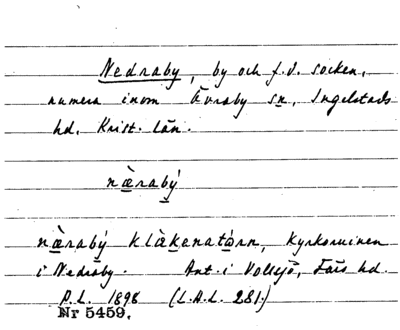 Nedraby, by och f.d. socken,
numera inom Övraby sn, Ingelstads
hd, Krist. län.
næ̀rabý
næ̀rabý klæ̀kenatòrn, kyrkoruinen
i Nedraby. Ant. i Vollsjö, Färs hd.
P.L. 1898 (L.A.L. 281.)
Nr 5459.